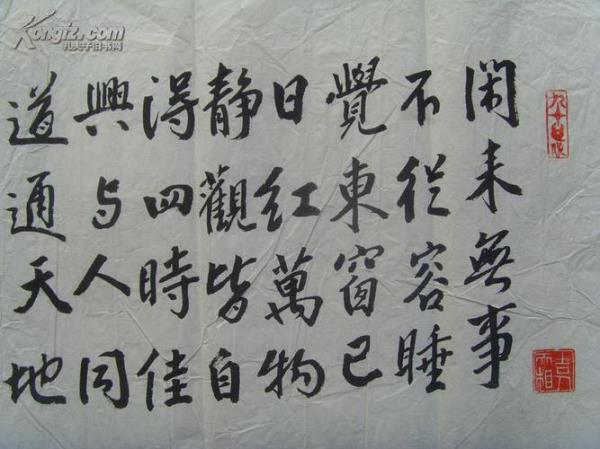 閑来無事
不從容睡
覺東窗已
日红萬物
静觀皆自
得四時佳
興与人同
道通天地
Kongfz.com
孔夫子旧书网